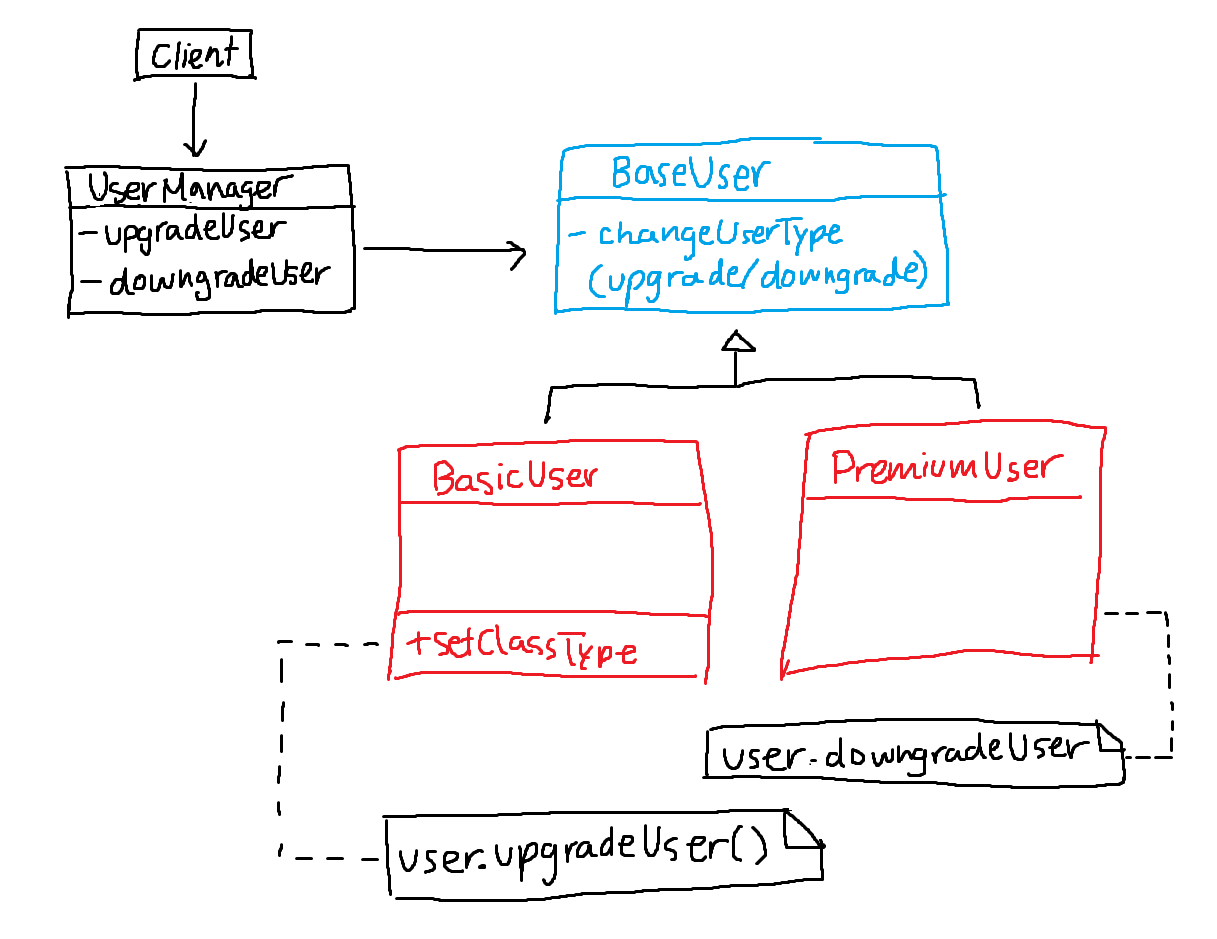 Client
UserManager
- upgradeUser
- downgradeUser
BaseUser
- changeUserType
(upgrade/downgrade)
BasicUser
+setClassType
PremiumUser
user.downgradeUser
user.upgradeUser()